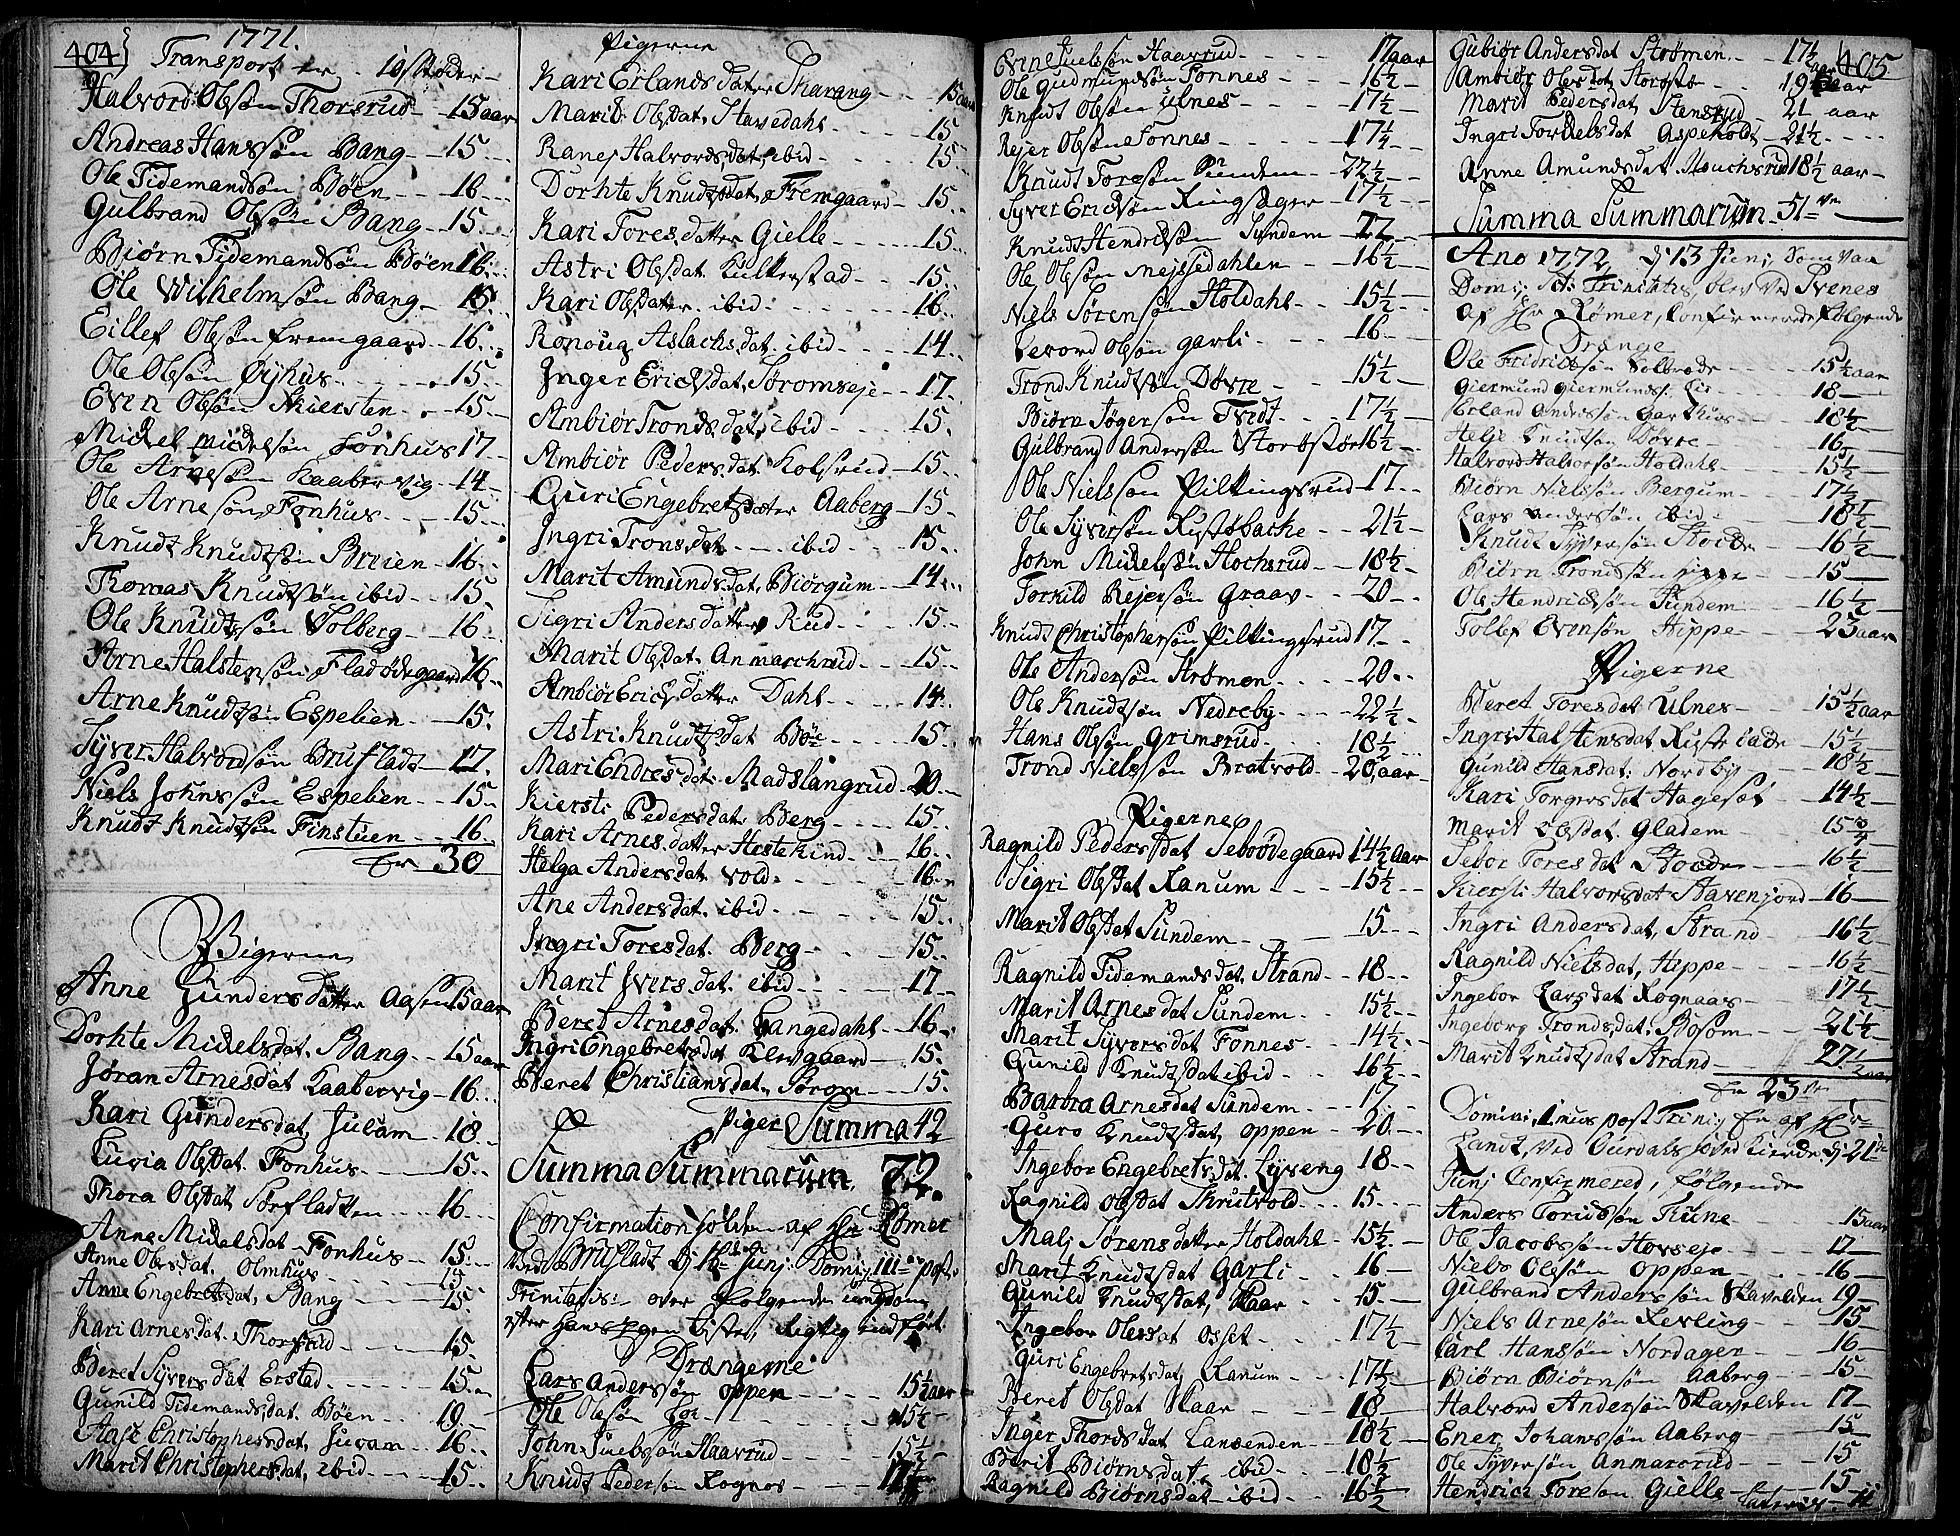 404
1771.
Transport er. 10 støder
Halvord Olssøn Thorsrud - 15 aar
Andreas Hanssøn Bang - 15
Ole Tidemandsøn Bøen - 16
Gulbrand Olssøn Bang - 15
Biørn Tidemandsøn Bøen 16
Ole Wilhelmsøn Bang - 15
Eillef Olssøn Fremgaard - 16
Ole Olssøn Øyhus - 15
Even Olssøn Kiersten - 15
Mickel Mickelsøn Fonhus 17
Ole Arnesøn Kaabervig - 14
Ole Arnesøn Fonhus - 15
Knudt Knudtsøn Breien - 16
Thomas Knudtsøn ibid - 15
Ole Knudtsøn Volberg - 16
Arne Halstensøn Fladødegaard 16
Arne Knudtsøn Espelien - 15
Syver Halvordsøn Brufladt - 17
Niels Johnssøn Espelien - 15
Knudt Knudtsøn Finstuen - 16
Er 30
Pigerne
Anne Gundersdatter Aasen 15 aar
Dorhte Mickelsdat. Bang - 15 aar
Jøran Arnesdat Kaabervig - 16
Kari Gundersdat. Juvam - 18
Luria Olsdat. Fonhus - 15
Thora Olsdat Sørfladten - 16
Anne Mickelsdat Fonhus - 15
Anne Olsdat. Olmhus - 15
Anne Engebretsdat, Bang - 15
Kari Arnesdat. Thorsrud - 15
Beret Syversdat Erstad - 15
Gunild Tidemandsdat. Bøen - 19
Aase Christophersdat, Juvam - 16
Marit Christophersdat, ibid - 15
Pigerne
Kari Erlandsdatter Skarang - 15 aar
Marit Olsdat. Havedahl - 15
Ranej Halvordsdat, ibid - 15
Dorhte Knudtsdat, Fremgaard - 15
Kari Toresdatter Gielle - 15
Astri Olsdat. Kulterstad - 15
Kari Olsdatter ibid - 16
Ronoug Aslachsdat. ibid - 14
Inger Ericksdat, Sørumseje - 17
Ambiør Trondsdat, ibid - 15
Ambiør Pedersdat. Kolsrud - 15
Guri Engebretsdatter Aaberg - 15
Ingri Tronsdat - ibid - 15
Marit Amundsdat, Biørgum - 14
Sigri Andersdatter Rud - 15
Marit Olsdat. Anmarchrud - 15
Ambiør Ericksdatter Dahl - 14
Astri Knudtsdat Bøe - 15
Mari Endresdat. Madslangrud 20
Kiersti Pedersdat. Berg - 15
Kari Arnesdatter Hestekind - 16
Helga Andersdat. Vold - 16
Ane Andersdat. ibid - 15
Ingri Toresdat. Berg - 15
Marit Iversdat. ibid - 17
Beret Arnesdat. Langedahl - 16
Ingri Engebretsdat Klevgaard - 15
Beret Christiansdat. Sørom - 15
Piger Summa 42
Summa Summarum 72.
Confirmation holden af Hr. Rømer
ved Brufladt d. 16 Junj. Domin. III post
Trinitatis: over følgende ungdom
efter hans egen Liste, rigtig indført
Drængerne
Lars Anderssøn Oppen - 15½ aar
Ole Olssøn - 15½
John Juelssøn Haavrud - 15½
Knudt Pedersøn Rognos - 17½
Even Juelsøn Haavrud - 17 aar
Ole Gudmundsøn Fonnes - 16½
Knudt Olssøn Ulnes - 17½
Rejer Olssøn Fonnes - 17½
Knudt Toresøn Sundem - 22½
Syver Ericksøn Ringsager - 17½
Knudt Hendricksøn Sundem 22
Ole Olssøn Mejssedahlen - 16½
Niels Sørensøn Holdahl - 15½
Levord Olssøn Garli - 16
Trond Knudtsøn Døvre - 15½
Biørn Jøgersøn Tvedt - 17½
Gulbrand Andersøn Storøstør 16½
Ole Nielssøn Piltingsrud 17
Ole Syversøn Rustebacke - 21½
John Mickelsøn Hochsrud - 18½
Torkild Rejersøn Graav - 20
Knudt Christophersøn Piltingsrud 17
Ole Andersøn Strømen - 20
Ole Knudtsøn Nedreby - 22½
Hans Olssøn Grimsrud - 18½
Trond Nielssøn Bratvold - 20 aar
Pigerne
Ragnild Pedersdat Seboødegaard 14½ aar
Sigri Olsdat Ranum - 15½
Marit Olsdat Sundem - 15
Ragnild Tidemandsdat. Strand - 18
Marit Arnesdat Sundem - 15½
Marit Syversdat Fonnes - 14½
Gunild Knudtsdat ibid - 16½
Barbra Arnesdat Sundem - 17
Guro Knudtsdat, Oppen - 20
Ingebor Engebretsdat. Lyseng 18
Ragnild Olsdat Skrutvold - 15
Malj Sørensdatter Holdahl - 15½
Marit Knudtsdat Garli - 16
Gunild Knudtsdat, Skaar - 15
Ingebor Olesdat Osset - 17½
Guri Engebretsdat, Ranum - 17½
Beret Olsdat Skaar - 18
Inger Thordsdat Langenden - 18½
Berit Biørnsdat. ibid - 18½
Ragnild Biørnsdat ibid - 16½
405
Gubiør Andersdat Strømen - 17½ aar
Ambiør Olesdat Storøstø - 19½ aar
Marit Pedersdat Stensrud - 21 aar
Ingri Torkelsdat Aspeholdt - 21½
Anne Amundsdat Houchsrud 18½ aar
Summa Summarum 51
Ano 1772, d. 13 Junj, som var
Domi: St: Trinitatis, blev ved Svenes
af Hr Rømer, Confirmerede følgende
Drænge
Ole Fridricksøn Volbrøde - 15½ aar
Giermund Giermunds. Lie - 18
Erland Anderssøn Garthus - 18½
Helje Knudtsøn Døvre - 16
Halvord Halvorsøn Holdahl - 15½
Biørn Nielsøn Bergum - 17½
Lars Anderssøn ibid - 18½
Knudt Syversøn Stoede - 16½
Biørn Trondsøn Hippe - 15
Ole Hendricksøn Sundem - 16½
Tollef Evensøn Hippe - 23 aar
Pigerne
Beret Toresdat Ulnes - 15½ aar
Ingri Halstensdat Rustebacke 15½
Gunild Hansdat: Nordby - 18½
Kari Torgersdat Hageset - 14½
Marit Olsdat. Gladem - 15¾
Sebor Toresdat Stoede - 16½
Kiersti Halvorsdat Stavenjord - 16
Ingri Andersdat, Strand - 16½
Ragnild Nielsdat, Hippe - 16½
Ingebor Larsdat Rognaas - 17½
Ingeborg Trondsdat: Bosom - 21½
Marit Knudtsdat Strand - 27½ aar
Er 23
Domini. Imus post Trini: Er af Hr
Landt, ved Ourdals hoved Kierke, d. 21
Junj Confirmered, følgende
Anders Torickssøn Tune - 15 aar
Ole Jacobssøn Hovseje - 17
Niels Olssøn Oppen - 16
Gulbrand Anderssøn Skavelden 19
Niels Arnesøn Revling - 15
Carl Hanssøn Nordager - 16
Biørn Biørnsøn Aaberg - 15
Halvord Andersøn Skavelden 17
Ener Johanssøn Aaberg - 15
Ole Syversøn Anmarcrud - 15
Hendrick Toresøn Gielle - 15
Lateris 11